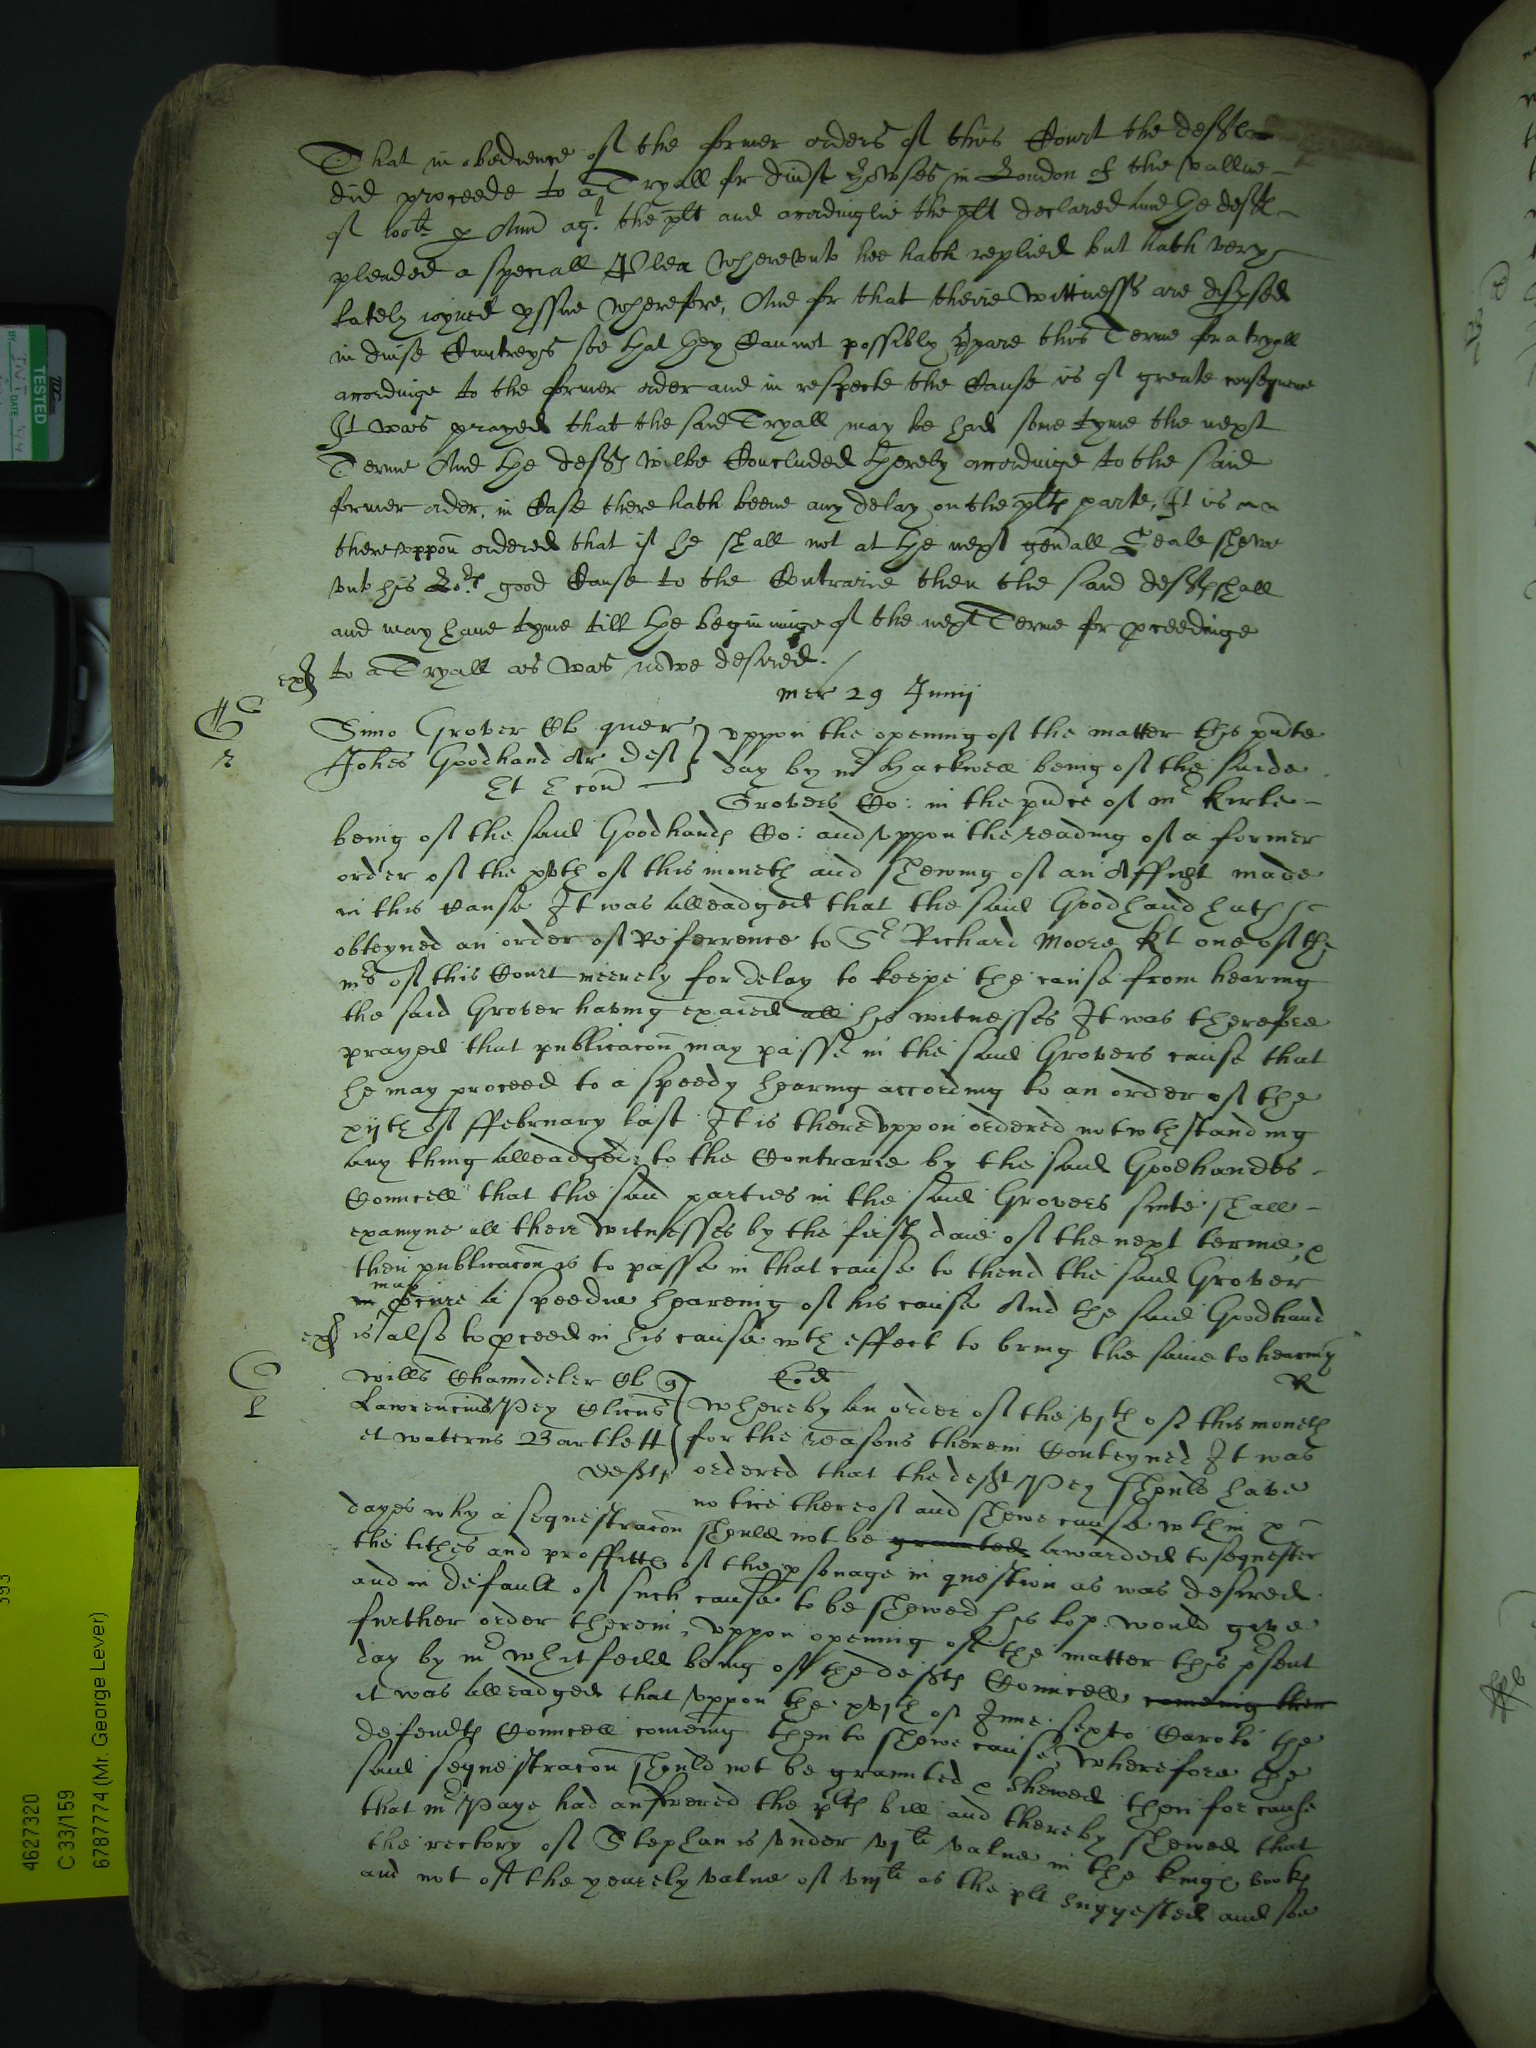 That in obedience of the former orders of this Court the defts
did proceede to a Tryall for divse howses in London of the vallue
of 100li p Ann agt the plt and accordinglie the plt declared and the deft
pleaded a speciall Plea wherevnto hee hath replied but hath very
lately ioyned yssue wherefore, And for that theire wittnesses are dispsed
in divse Cuntreys soe that they Cannot possibly ppare this Terme for a tryall
accordinge to the former order and in respecte the Cause is of greate consequence
It was prayed that the said Tryall may be had some tyme the next
Terme And the defts wilbe Concluded thereby accordinge to the said
former order, in Case there hath beene any delay on the plts parte, It is
therevppon ordered that if he shall not at the next genall Seale shewe
vnto his Lopp good Cause to the Contrarie then the said defts shall
and may haue tyme till the beginninge of the next Terme for pceedinge
exr to a Tryall as was nowe desired.
mer 29 Junij
Simo Grover Ab quer vppon the opening of the matter this pnte
Johes Goodhand Ar deft day by mr Hackwell being of the saide
Et E cont Grovers Co: in the pnce of mr Kirke
being of the said Goodhands Co: and vppon the reading of a former
order of the xvth of this moneth and shewing of an Affidt made
in this cause It was alleadged that the said Goodhand hath
obteyned an order of Referrence to Sr Richard Moore kt one of the
mrs of this Court meerely for delay to keepe the cause from hearing
the said Grover having exaied all his witnesses It was therefore
prayed that publicacon may passe in the said Grovers cause that
he may proceed to a speedy hearing according to an order of the
xijth of ffebruary last It is therevppon ordered notwthstanding
any thing alleadged to the Contrarie by the said Goodhandes
Councell that the said parties in the said Grovers suite shall
examyne all their witnesses by the first daie of the next terme, &
then publicacon is to passe in that cause to thend the said Grover
may
pcure a speedie heareing of his cause And the said Goodhand
exr is also to pceed in his cause wth effect to bring the same to hearing
R
Willus Chaundeler Ab q Eod
Lawrencius Pey Clicus Whereby an order of the vjth of this moneth
et waterus Bartlett for the reasons therein Conteyned It was
defts ordered that the deft Pey should have
notice thereof and shewe cause wthin x
dayes why a sequestracon should not be graunted awarded to sequester
the tithes and proffitts of the psonage in question as was desired
and in default of such cause to be shewed his lop would give
further order therein, vppon opening of the matter this psent
day by mr whitfeild being of the defts Councell comeing then
it was alleadged that vppon the xvjth of June sexto Caroli the
defendts Councell comeing then to shewe cause wherefore the
said sequestracon should not be graunted & shewed then for cause
that mr Paye had answered the plts bill and thereby shewed that
the rectory of Stephan is vnder vjli value in the kings books
and not of the yearely value of viijli as the plt suggested and soe
TESTED
DATE
393
4627320
C 33/159
6787774 (Mr. George Lever)